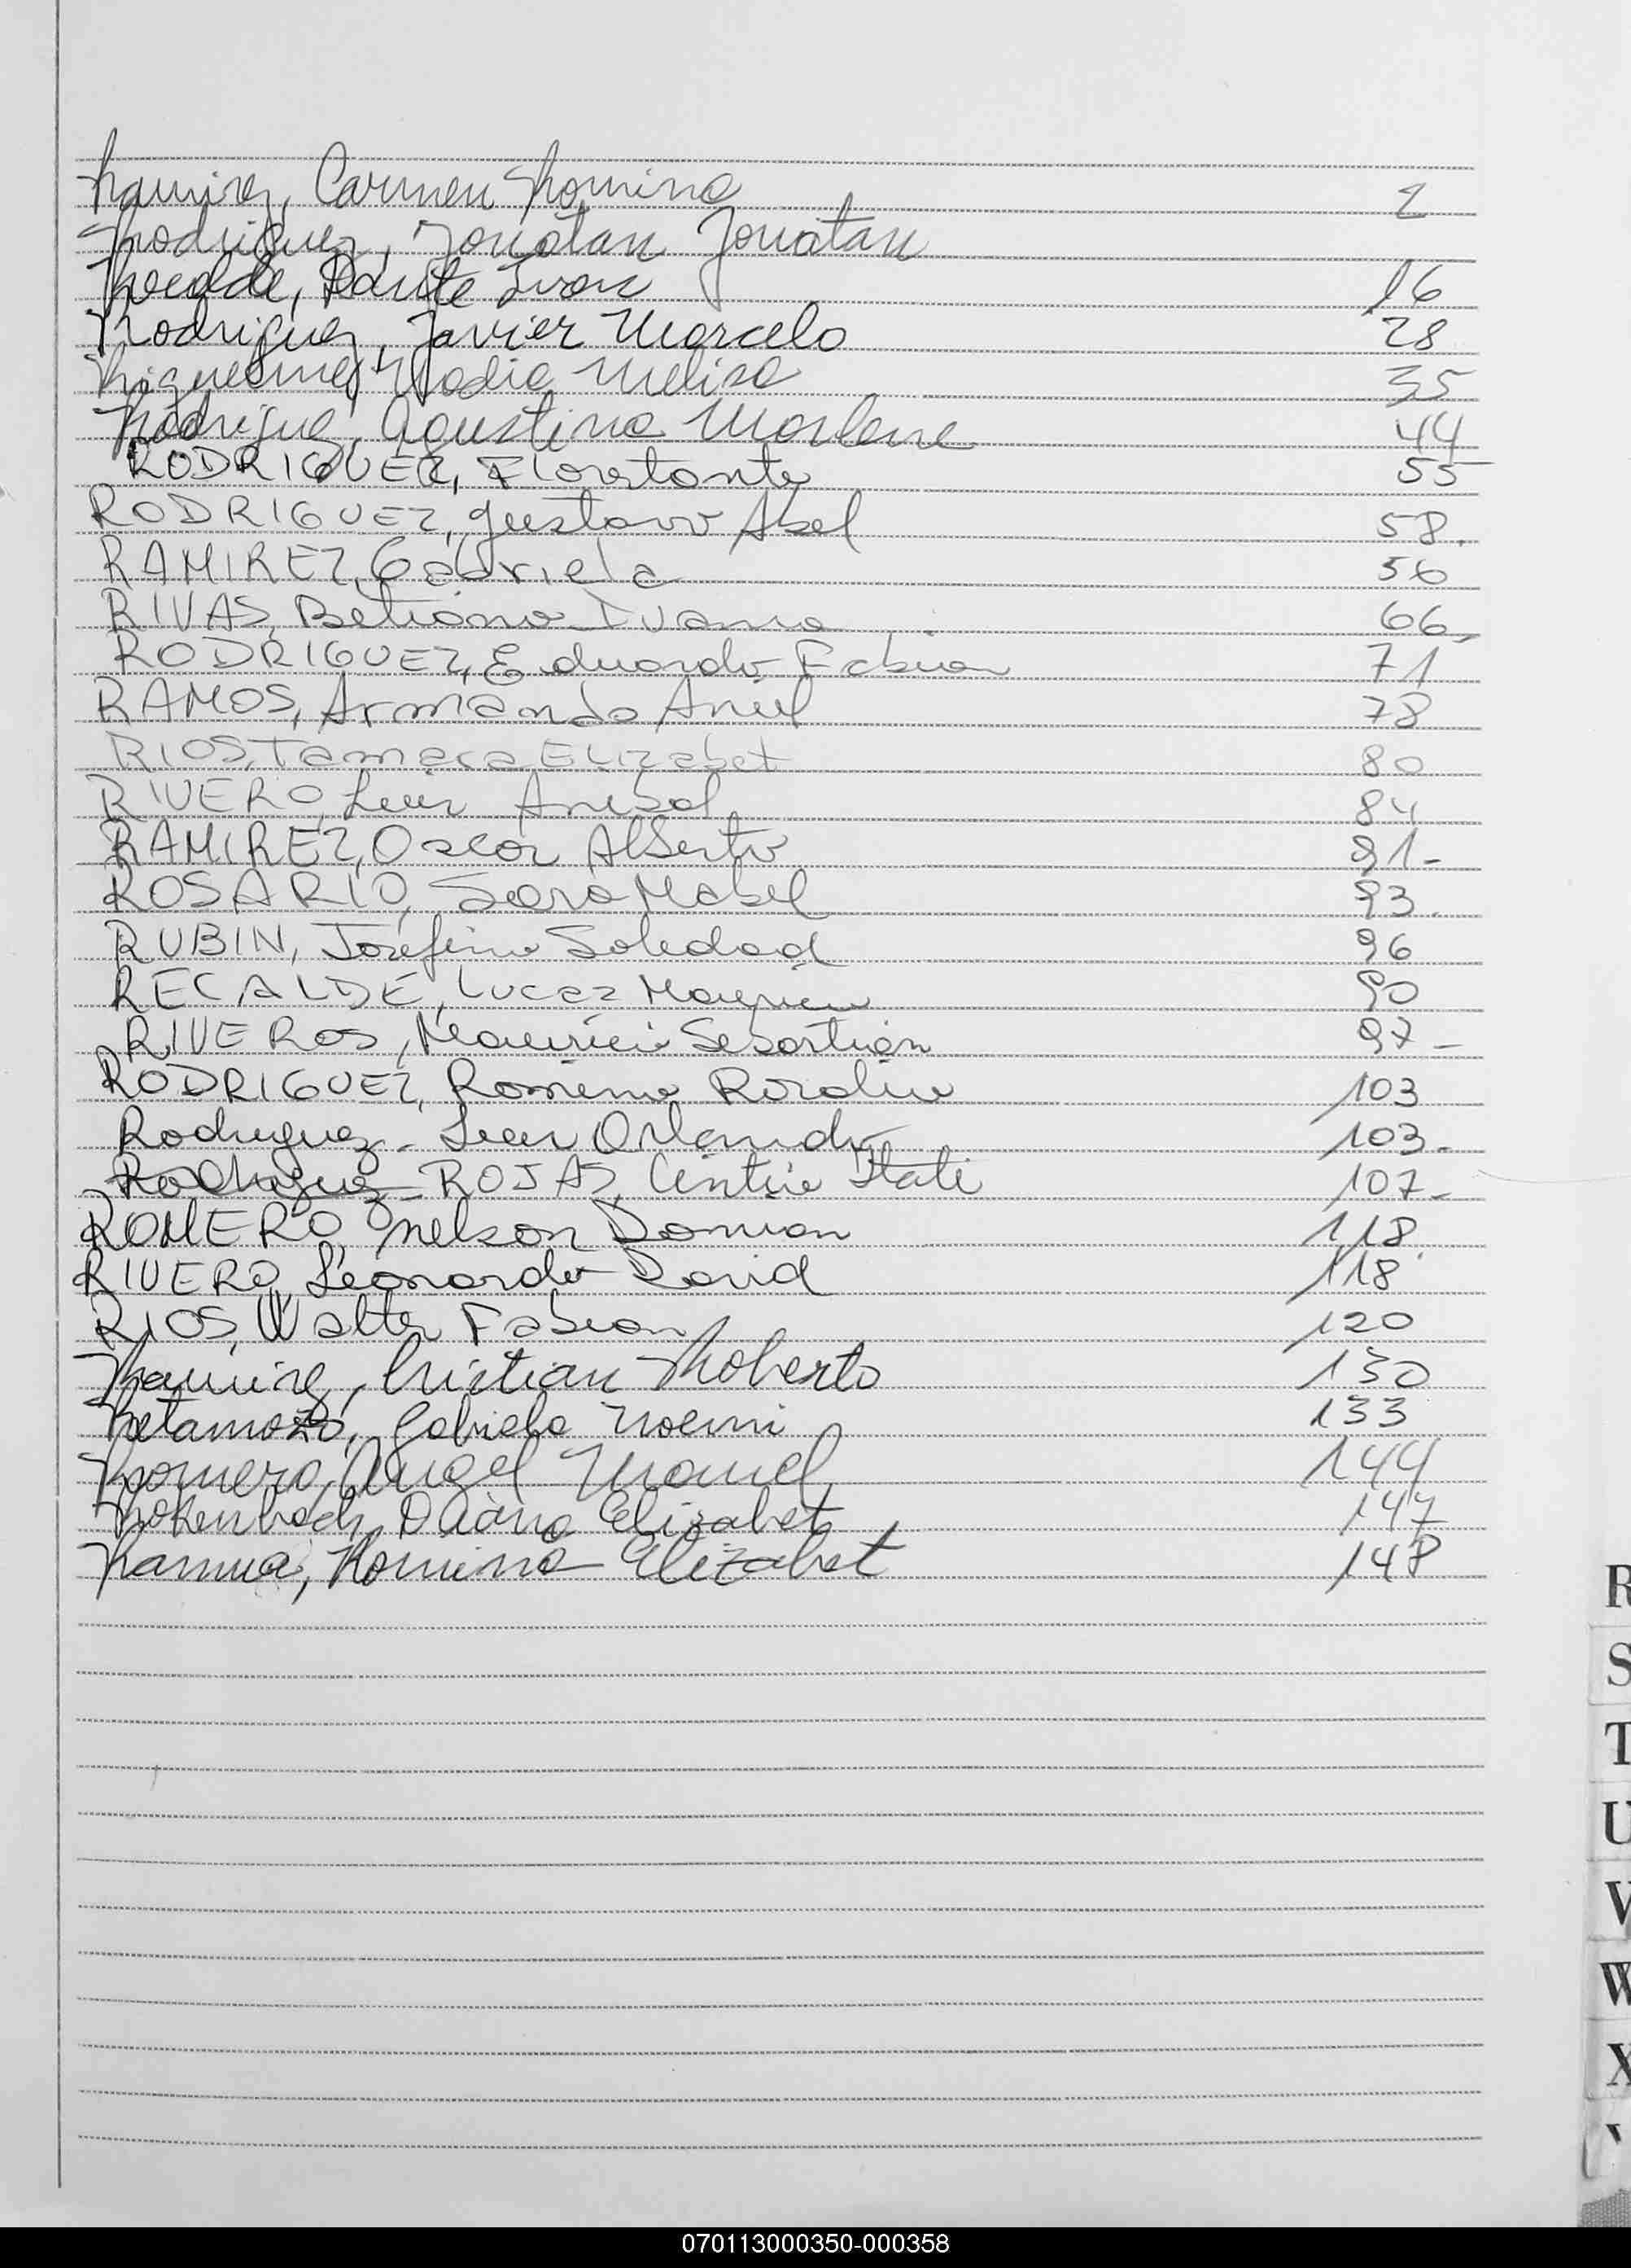 Ramirez, Carmen Romina 2
Rodriguez, Jonatan Jonatan
Recalde, Dante Ivan 16
Rodriguez, Javier Marcelo 28
Riquelme, Nadia Melisa 35
Rodriguez, Agustina Marlene 44
RODRIGUEZ, 55
RODRIGUEZ, Gustavo Abel 58.
RAMIREZ, Gabriela 56
RIVAS, Betiana Ivana 66
RODRIGUEZ, Eduardo Fabian 71
RAMOS, Armando Ariel 78
RIOS, Tamara Elizabet 80
RIVERO, Luis Anibal 84
RAMIREZ, Oscar Alberto 91-
ROSARIO, Sara Mabel 93.
RUBIN, Josefina Soledad 96
RECALDE, Lucas 90
RIVEROS, Mauricio Sebastian 97-
RODRIGUEZ, Romina 103
Rodriguez - Luis Orlando 103-
Rodriguez - ROJAS, Cintia Itati 107-
ROMERO, Nelson Damian 118
RIVERO, Leonardo David 118
RIOS, Walter Fabian 120
Ramirez, Cristian Roberto 130
Retamozo, Gabriela Noemi 133
Romero, Angel Manuel 144
Elizabet 147
Romina Elizabet 148
R
S
T
U
V
W
X
070113000350-000358